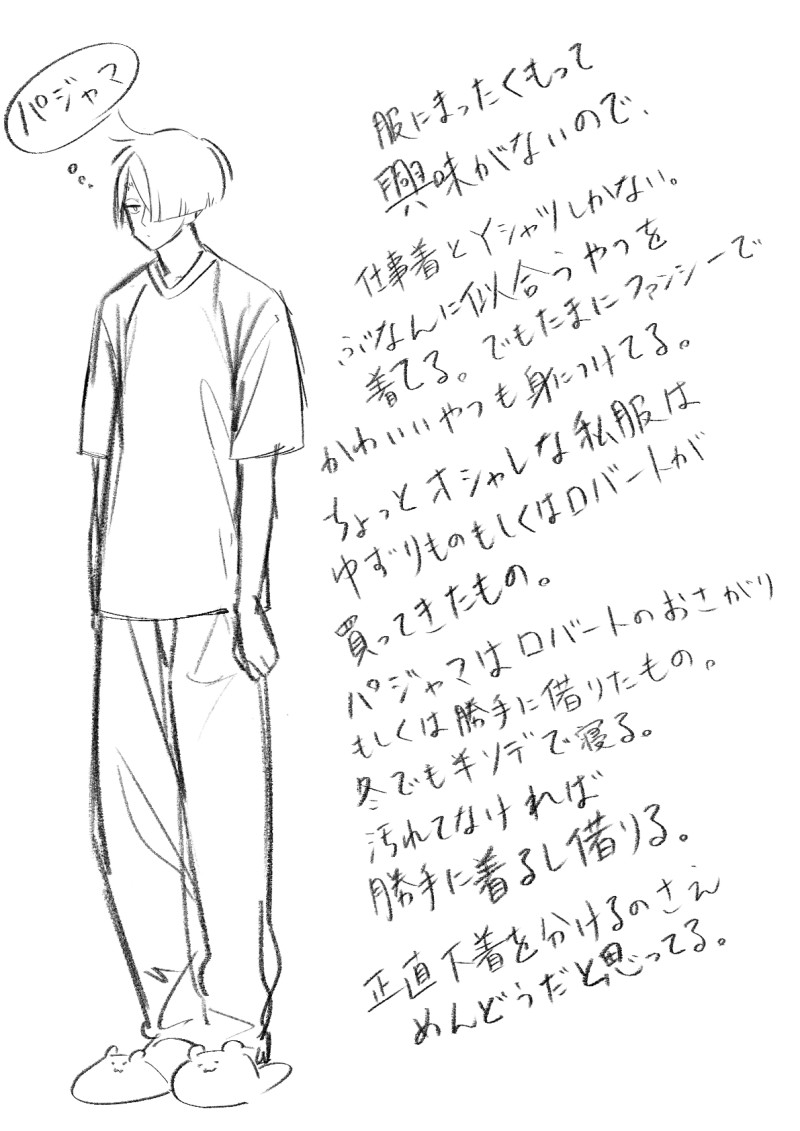 パジャマ
服にまったくもって
興味がないので、
仕事着とYシャツしかない。
ぶなんに似合うやつを
着てる。でもたまにファンシーで
かわいいやつも身につけてる。
ちょっとオシャレな私服は
ゆずりものもしくはロバートが
買ってきたもの。
パジャマはロバートのおさがり
もしくは勝手に借りたもの。
冬でも半ソデで寝る。
汚れてなければ
勝手に着るし借りる。
正直下着を分けるのさえ
めんどうだと思ってる。